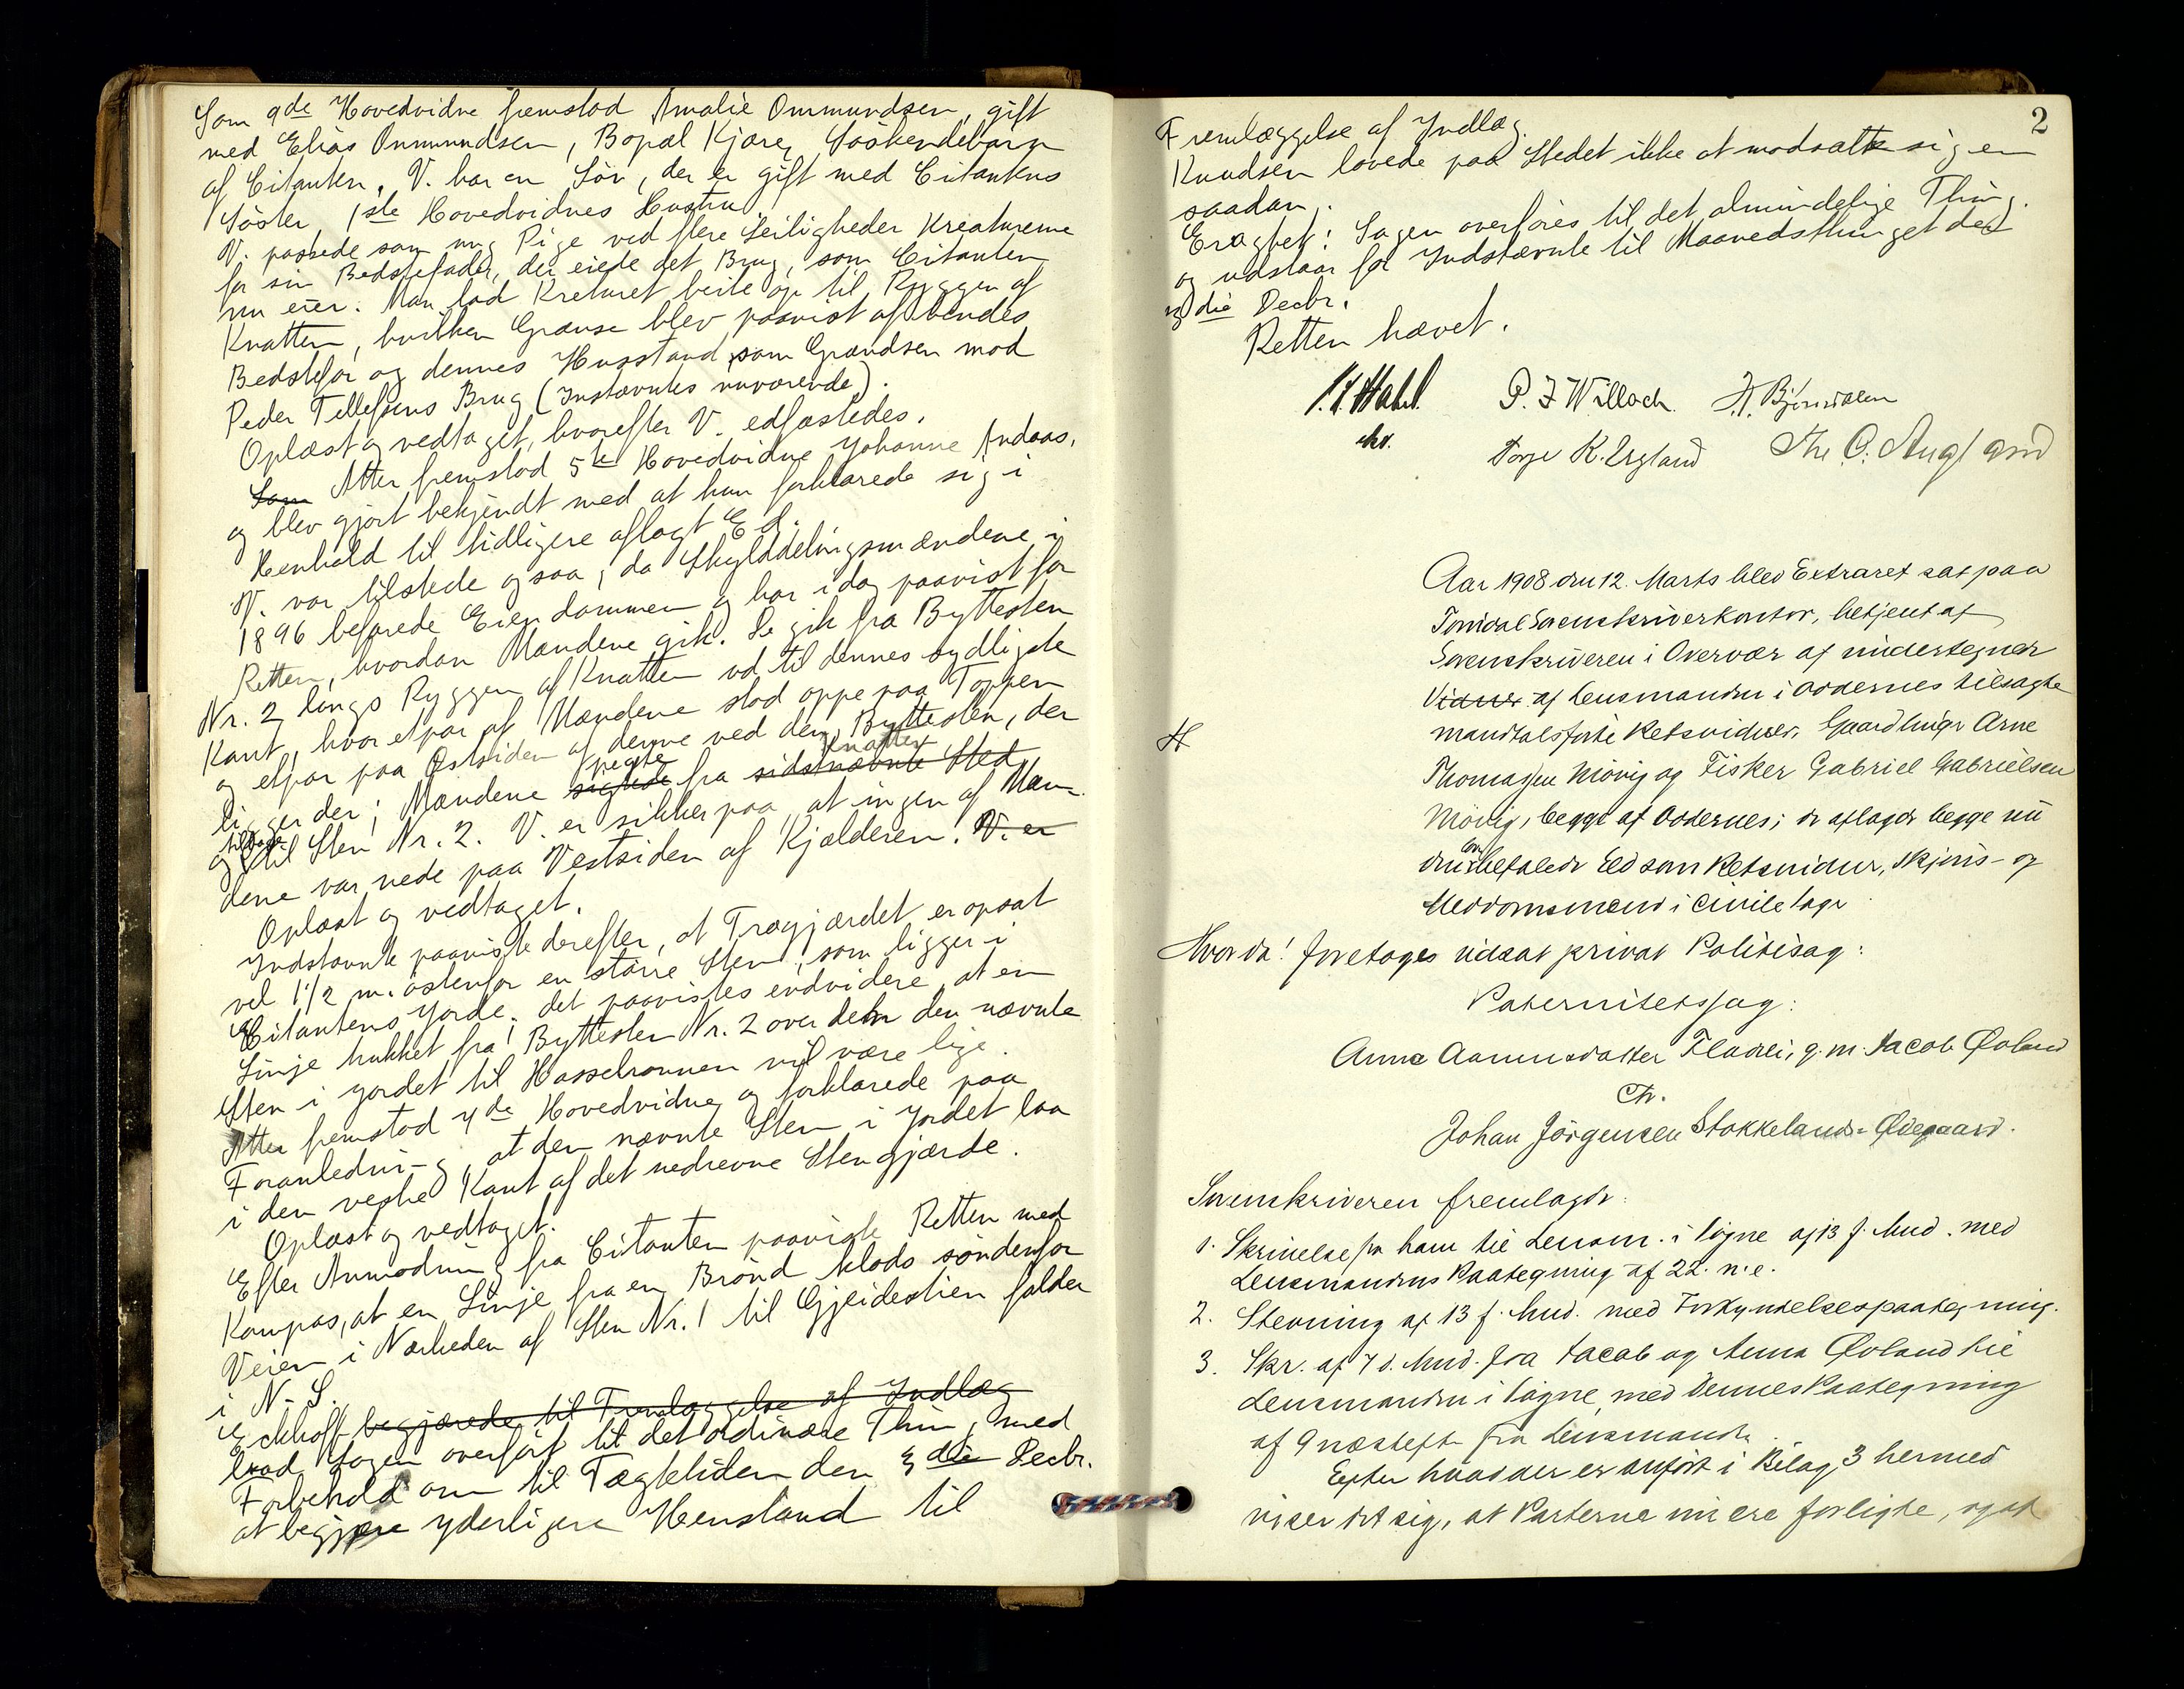 Som 9de Hovedvidne fremstod Amalie Ommundsen, gift
med Elias Ommundsen, Bopæl Kjære, Søskendebarn
af Citanten. V. har en Søn, der er gift med Citantens
Søster, 1ste Hovedvidnes Hustru.
V. passede som ung Pige ved flere Leiligheder Kreaturerne
for sin Bedstefader, der eiede det Brug, som Citanten
nu eier. Man lod Kreturet beite op til Ryggen af
Knatten, hvilken Grænse blev paavist af hendes
Bedstefor og dennes Husstand som Grændsen mod
Peder Tellefsens Brug (Instævntes nuværende).
Oplæst og vedtaget, hvorefter V. edfæstedes.
Som Atter fremstod 5te Hovedvidne Johanne Andaas,
og blev gjort bekjendt med at hun forklarede sig i
Henhold til tidligere aflagt Ed.
V. var tilstede ogsaa, da Skylddelingsmændene i
1896 befarede Eiendommen og har idag paavist for
Retten, hvordan Mændene gik. De gik fra Byttesten
Nr. 2 langs Ryggen af Knatten ud til dennes sydligste
Kant, hvor etpar af Mændene stod oppe paa Toppen
og etpar paa Østsiden af denne ved den Byttesten, der
ligger der; Mændene sigtede pegte fra sidstnævnte Sted Knatten
og tilbage til Sten Nr. 2. V. er sikker paa, at ingen af Mæn-
dene var nede paa Vestsiden af Kjælderen. V. er
Oplæst og vedtaget.
Indstævnte paaviste derefter, at Trægjærdet er opsat
vel 1 1/2 m. østenfor en større Sten, som ligger i
Citantens Jorde. det paavistes endvidere, at en
Linje trukket fra Byttesten Nr. 2 over den nævnte
Sten i Jordet til Hasselronnen vil være lige.
Atter fremstod 7de Hovedvidne og forklarede paa
Foranledning, at den nævnte Sten i Jordet laa
i den vestre Kant af det nedrevne Stengjærde.
Oplæst og vedtaget.
Efter Anmodning fra Citanten paaviste Retten med
Kompas, at en Linje fra en Brønd klods søndenfor
Veien i Nærheden af Sten Nr. 1 til Gjeidestien falder
i N.-S.
Eckhoff begjærede til Fremlæggelse af Indlæg
bad Sagen overført til det ordinære Thing med
Forbehold om til Tægtetiden den 3die Decbr.
at begjære yderligere Henstand til
2
Fremlæggelse af Indlæg.
Knudsen lovede paa Stedet ikke at modsætte sig en
saadan.
Eragtet! Sagen overføres til det almindelige Thing.
og udstaar for Indstævnte til Maanedsthinget den
3die Decbr.
Retten hævet.
P. F. Willoch. H. Bjørndalen
Torje K. Ergland
O. Augland
Aar 1908 den 12. Marts blev Extraret sat paa
Torridal Sorenskriverkontor, betjent af
Sorenskriveren i Overvær af undertegnede
Vidner af Lensmanden i Oddernes tilsagte
mandtalsførte Retsvidner, Gaardbruger Arne
Thomassen Møvig og Fisker Gabriel Gabrielsen
Møvig, begge af Oddernes; de aflagde begge nu
den befalede Ed som Retsvidner, Skjøns- og
Meddomsmænd i Civile Sager
Hvorda! foretoges udsat privat Politisag:
Paternitetssag:
Anna Aanensdatter Fladli, g. m. Jacob Øvland
Ctr.
Johan Jörgensen Stokkeland-Ødegaard.
Sorenskriveren fremlagde:
1. Skrivelse fra ham til Lensm. i Søgne af 13 f. Mnd. med
Lensmandens Paategning af 22. n.e.
2. Stevning af 13 f. Mnd. med Forkyndelsespaategning.
3. Skr. af 7 d. Mnd. fra Jacob og Anna Øvland til
Lensmanden i Søgne, med dennes Paategning
af 9 næstefter fra Lensmanden.
Efter hvad der er anført i Bilag 3 hermed
viser det sig, at Parterne nu ere forligte, og at